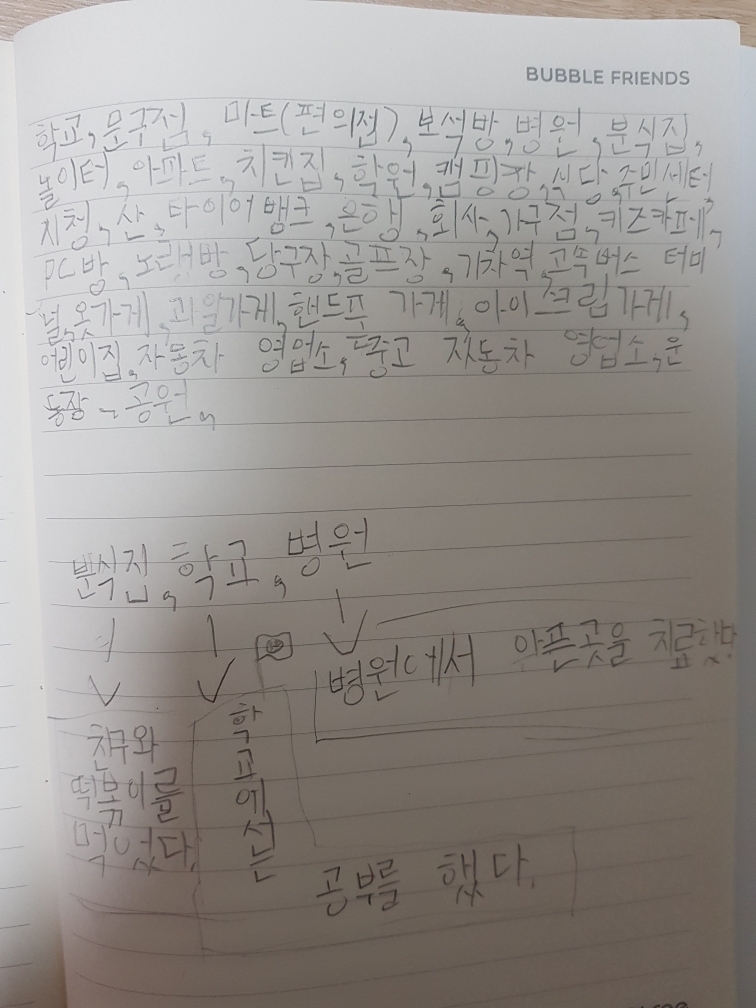 BUBBLE FRIENDS
학교, 문구점, 마트(편의점), 보석방, 병원, 분식집,
놀이터, 아파트, 치킨집, 학원, 캠핑장, 식당, 주민센터,
시청, 산, 타이어뱅크, 은행, 회사, 가구점, 키즈카페,
PC방, 노래방, 당구장, 골프장, 기차역, 고속버스 터미
널, 옷가게, 과일가게, 핸드푸 가게, 아이스크림가게,
어린이집, 자동차 영업소, 중고 자동차 영업소, 운
동장, 공원,
분식집, 학교, 병원
병원에서 아픈곳을 치료했다
친구와
떡볶이를
먹었다.
학교에서는
공부를 했다.